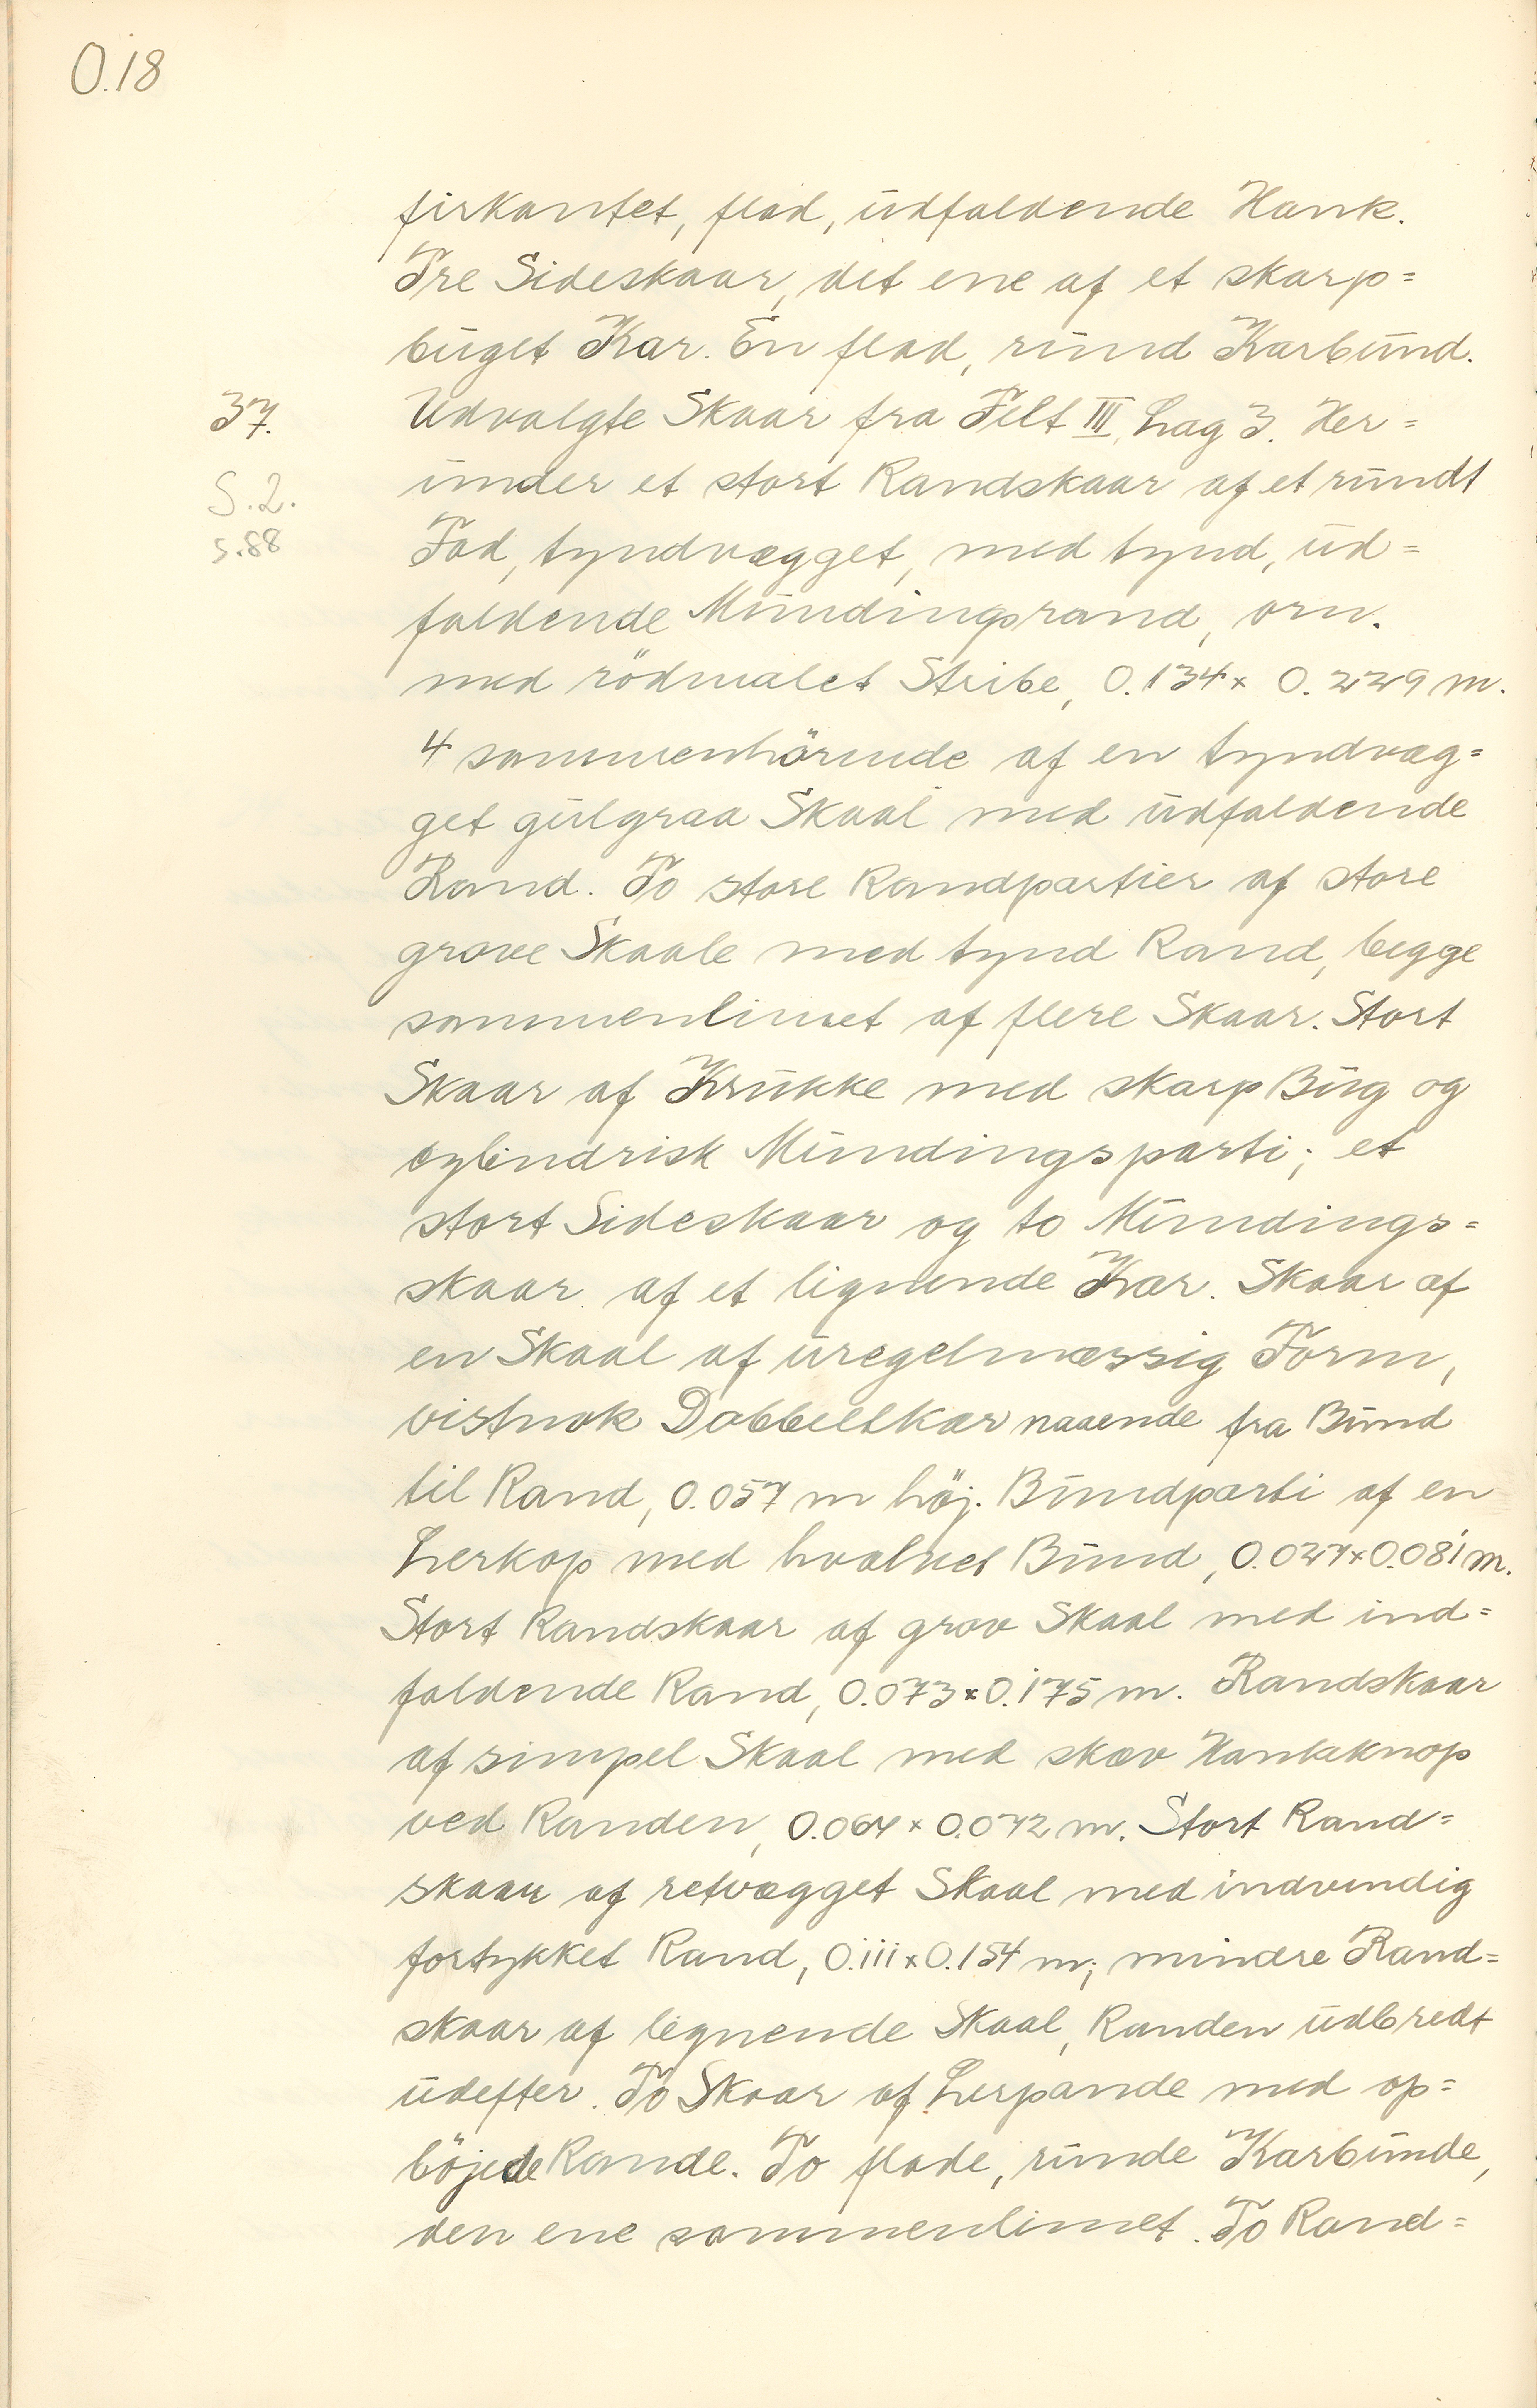 O.18
firkantet, flad, udfaldende Hank.
Tre Sideskaar, det ene af et skarp=
buget Kar. En flad, rund Karbund.
37. Udvalgte Skaar fra Felt III, Lag 3. Her=
S.2. under et stort Randskaar af et rundt
s.88 Fad, tyndvægget, med tynd, ud=
faldende Mundingsrand, orn.
med rödmalet Stribe, 0.134 x 0.229 m.
4 sammenhörende af en tyndvæg=
get gulgraa Skaal med udfaldende
Rand. To store Randpartier af store
grove Skaale med tynd Rand, begge
sammenlimet af flere Skaar. Stort
Skaar af Krukke med skarp Bug og
cylindrisk Mundingsparti; et
stort Sideskaar og to Mundings=
skaar af et lignende Kar. Skaar af
en Skaal af uregelmæssig Form,
vistnok Dobbeltkar naaende fra Bund
til Rand, 0.057 m höj. Bundparti af en
Lerkop med hvælvet Bund, x 0.081 m.
Stort Randskaar af grov Skaal med ind=
faldende Rand, 0.073 x 0.175 m. Randskaar
af simpel Skaal med skæv Hankeknop
ved Randen, 0.064 x 0.072 m. Stort Rand=
skaar af retvægget Skaal med indvendig
fortykket Rand, 0.111 x 0.154 m; mindre Rand=
skaar af lignende Skaal, Randen udbredt
udefter. To Skaar af Lerpande med op=
böjede Rande. To flade, runde Karbunde,
den ene sammenlimet. To Rand=